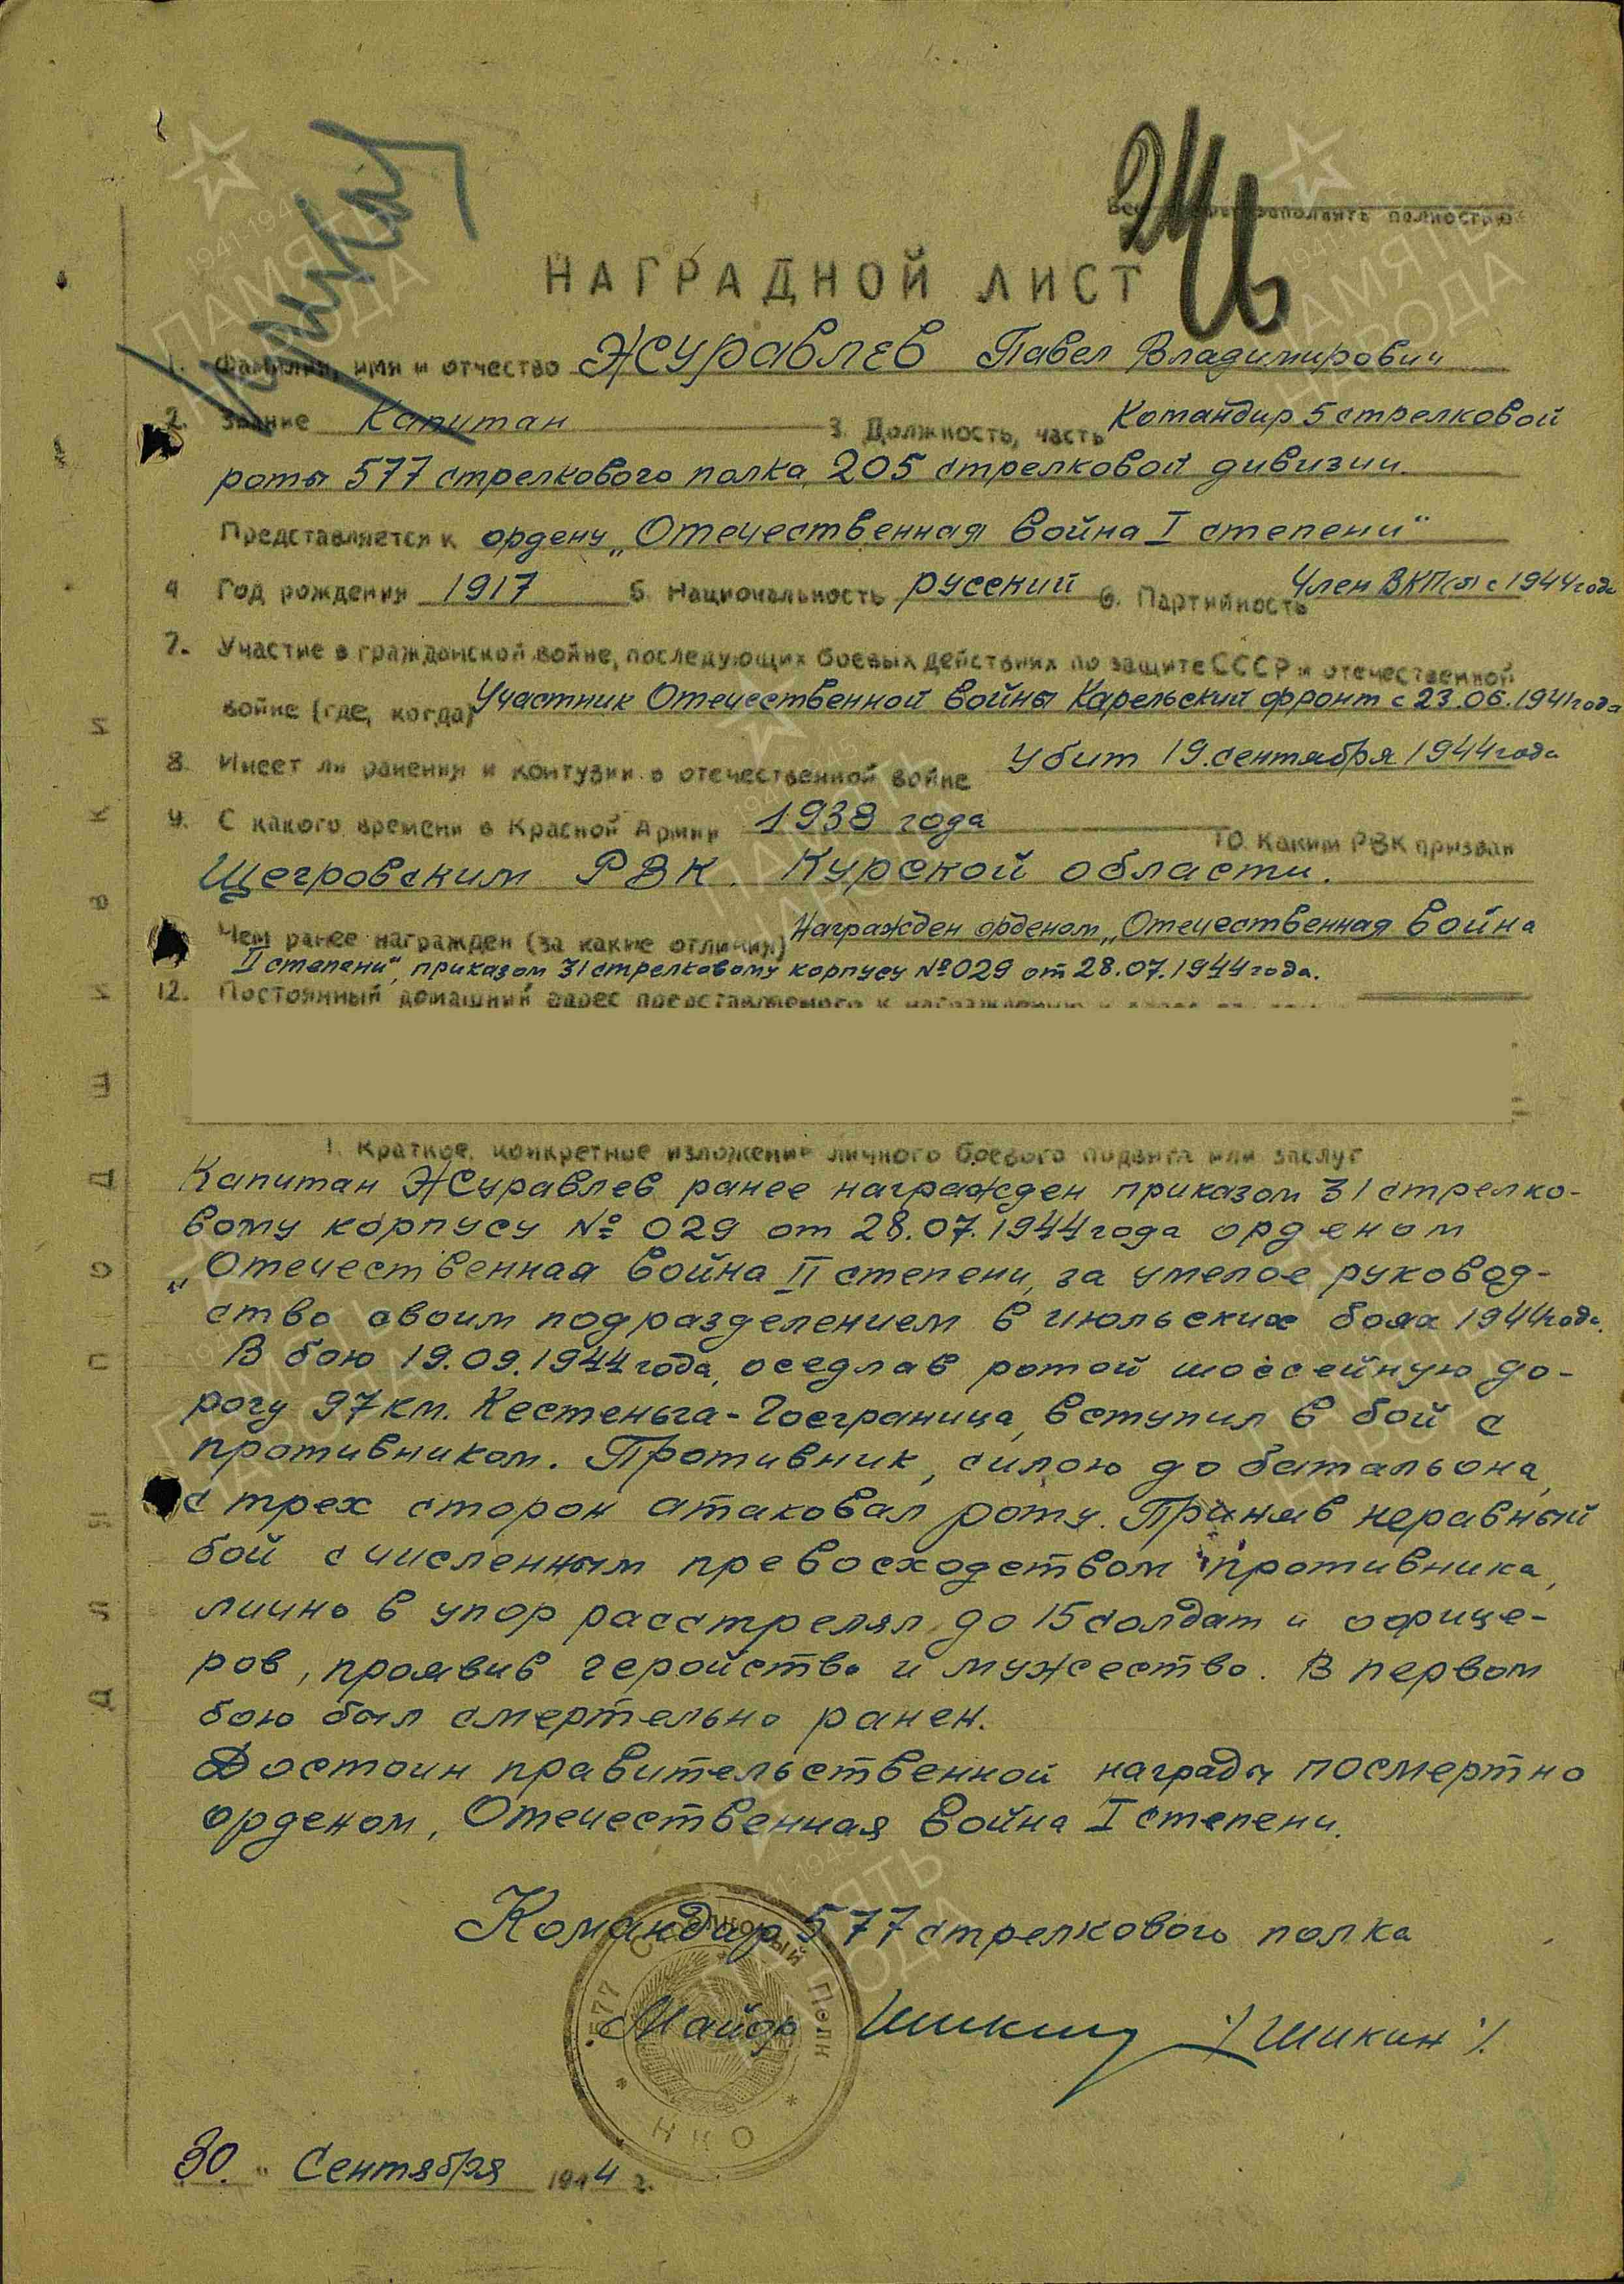 НАГРАДНОЙ ЛИСТ
1. Фамилия, имя и отчество Журавлев Павел Владимирович
2. Звание Капитан 3. Должность, часть Командир 5 стрелковой
роты 577 стрелкового полка, 205 стрелковой дивизии.
Представляется к ордену „Отечественная война I степени"
4 Год рождения 1917 5. Национальность русский 6. Партийность Член ВКП(б) с 1944 года
7. Участие в гражданской войне, последующих боевых действиях по защите СССР и отечественной
войне (где, когда) Участник Отечественной войны Карельский фронт с 23.06.1941 года
8. Имеет ли ранения и контузии в отечественной войне убит 19. сентября 1944 года
9. С какого времени в Красной Армии 1938 года 10. Каким РВК призван
Щегровским РВК. Курской области.
Чем ранее награжден (за какие отличия) Награжден орденом „Отечественная война
II степени", приказом 31 стрелковому корпусу № 029 от 28.07.1944 года.
12. Постоянный домашний адрес представляемого к
1. Краткое, конкретное изложение личного боевого подвига или заслуг
Капитан Журавлев ранее награжден приказом 31 стрелко-
вому корпусу № 029 от 28.07.1944 года орденом
„Отечественная война II степени, за умелое руковод-
ство своим подразделением в июльских боях 1944 года.
В бою 19.09.1944 года, оседлав ротой шоссейную до-
рогу 97 км. Кестеньга-Госграница, вступил в бой с
противником. Противник, силою до батальона,
с трех сторон атаковал роту. Приняв неравный
бой с численным превосходством противника,
лично в упор расстрелял до 15 солдат и офице-
ров, проявив геройство и мужество. В первом
бою был смертельно ранен.
Достоин правительственной награды посмертно
орденом, Отечественная война I степени.
Командир 577 стрелкового полка
Майор Шикин /Шикин/.
577 Стрелковый Полк
НКО
30. " Сентября 1944 г.
ПАМЯТЬ
НАРОДА
1941 1945